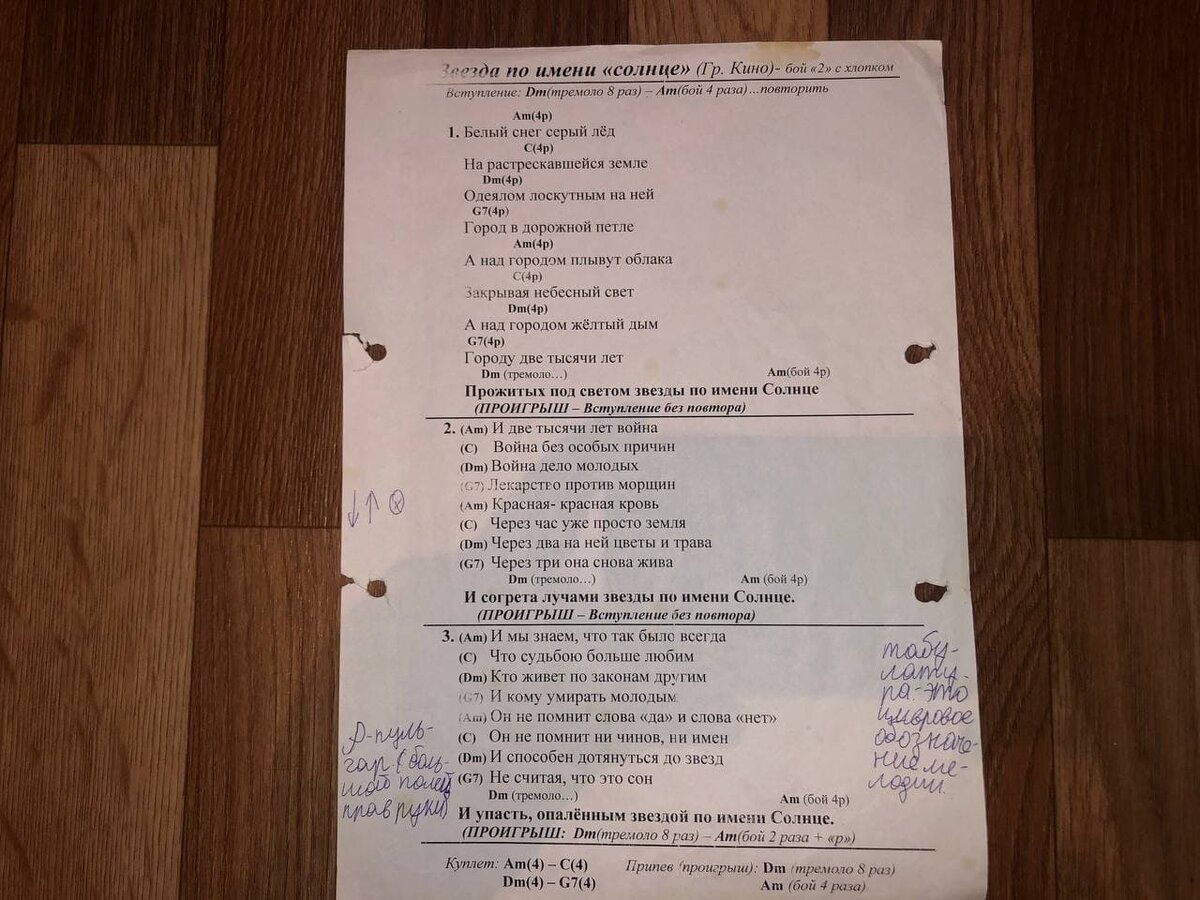 Звезда по имени «солнце» (Гр. Кино)- бой «2» с хлопком
Вступление: Dm(тремоло 8 раз) – Am(бой 4 раза)...повторить
Am(4р)
1. Белый снег серый лёд
C(4р)
На растрескавшейся земле
Dm(4р)
Одеялом лоскутным на ней
G7(4р)
Город в дорожной петле
Am(4р)
А над городом плывут облака
C(4р)
Закрывая небесный свет
Dm(4р)
А над городом жёлтый дым
G7(4р)
Городу две тысячи лет
Dm (тремоло...) Am(бой 4р)
Прожитых под светом звезды по имени Солнце
(ПРОИГРЫШ – Вступление без повтора)
2. (Am) И две тысячи лет война
(C) Война без особых причин
(Dm) Война дело молодых
(G7) Лекарство против морщин
(Am) Красная- красная кровь
(C) Через час уже просто земля
(Dm) Через два на ней цветы и трава
(G7) Через три она снова жива
Dm (тремоло...) Am (бой 4р)
И согрета лучами звезды по имени Солнце.
(ПРОИГРЫШ – Вступление без повтора)
3. (Am) И мы знаем, что так было всегда
(C) Что судьбою больше любим
(Dm) Кто живет по законам другим
(G7) И кому умирать молодым
(Am) Он не помнит слова «да» и слова «нет»
(C) Он не помнит ни чинов, ни имен
(Dm) И способен дотянуться до звезд
(G7) Не считая, что это сон
Dm (тремоло...) Am (бой 4р)
И упасть, опалённым звездой по имени Солнце.
(ПРОИГРЫШ: Dm(тремоло 8 раз) – Am(бой 2 раза + «р»)
Куплет: Am(4) – C(4) Припев (проигрыш): Dm (тремоло 8 раз)
Dm(4) – G7(4) Am (бой 4 раза)
↓↑⊗
р-пуль-
гар (боль-
шой палец
прав руки)
табу-
лату-
ра-это
цифровое
обозначе-
ние ме-
лодии.